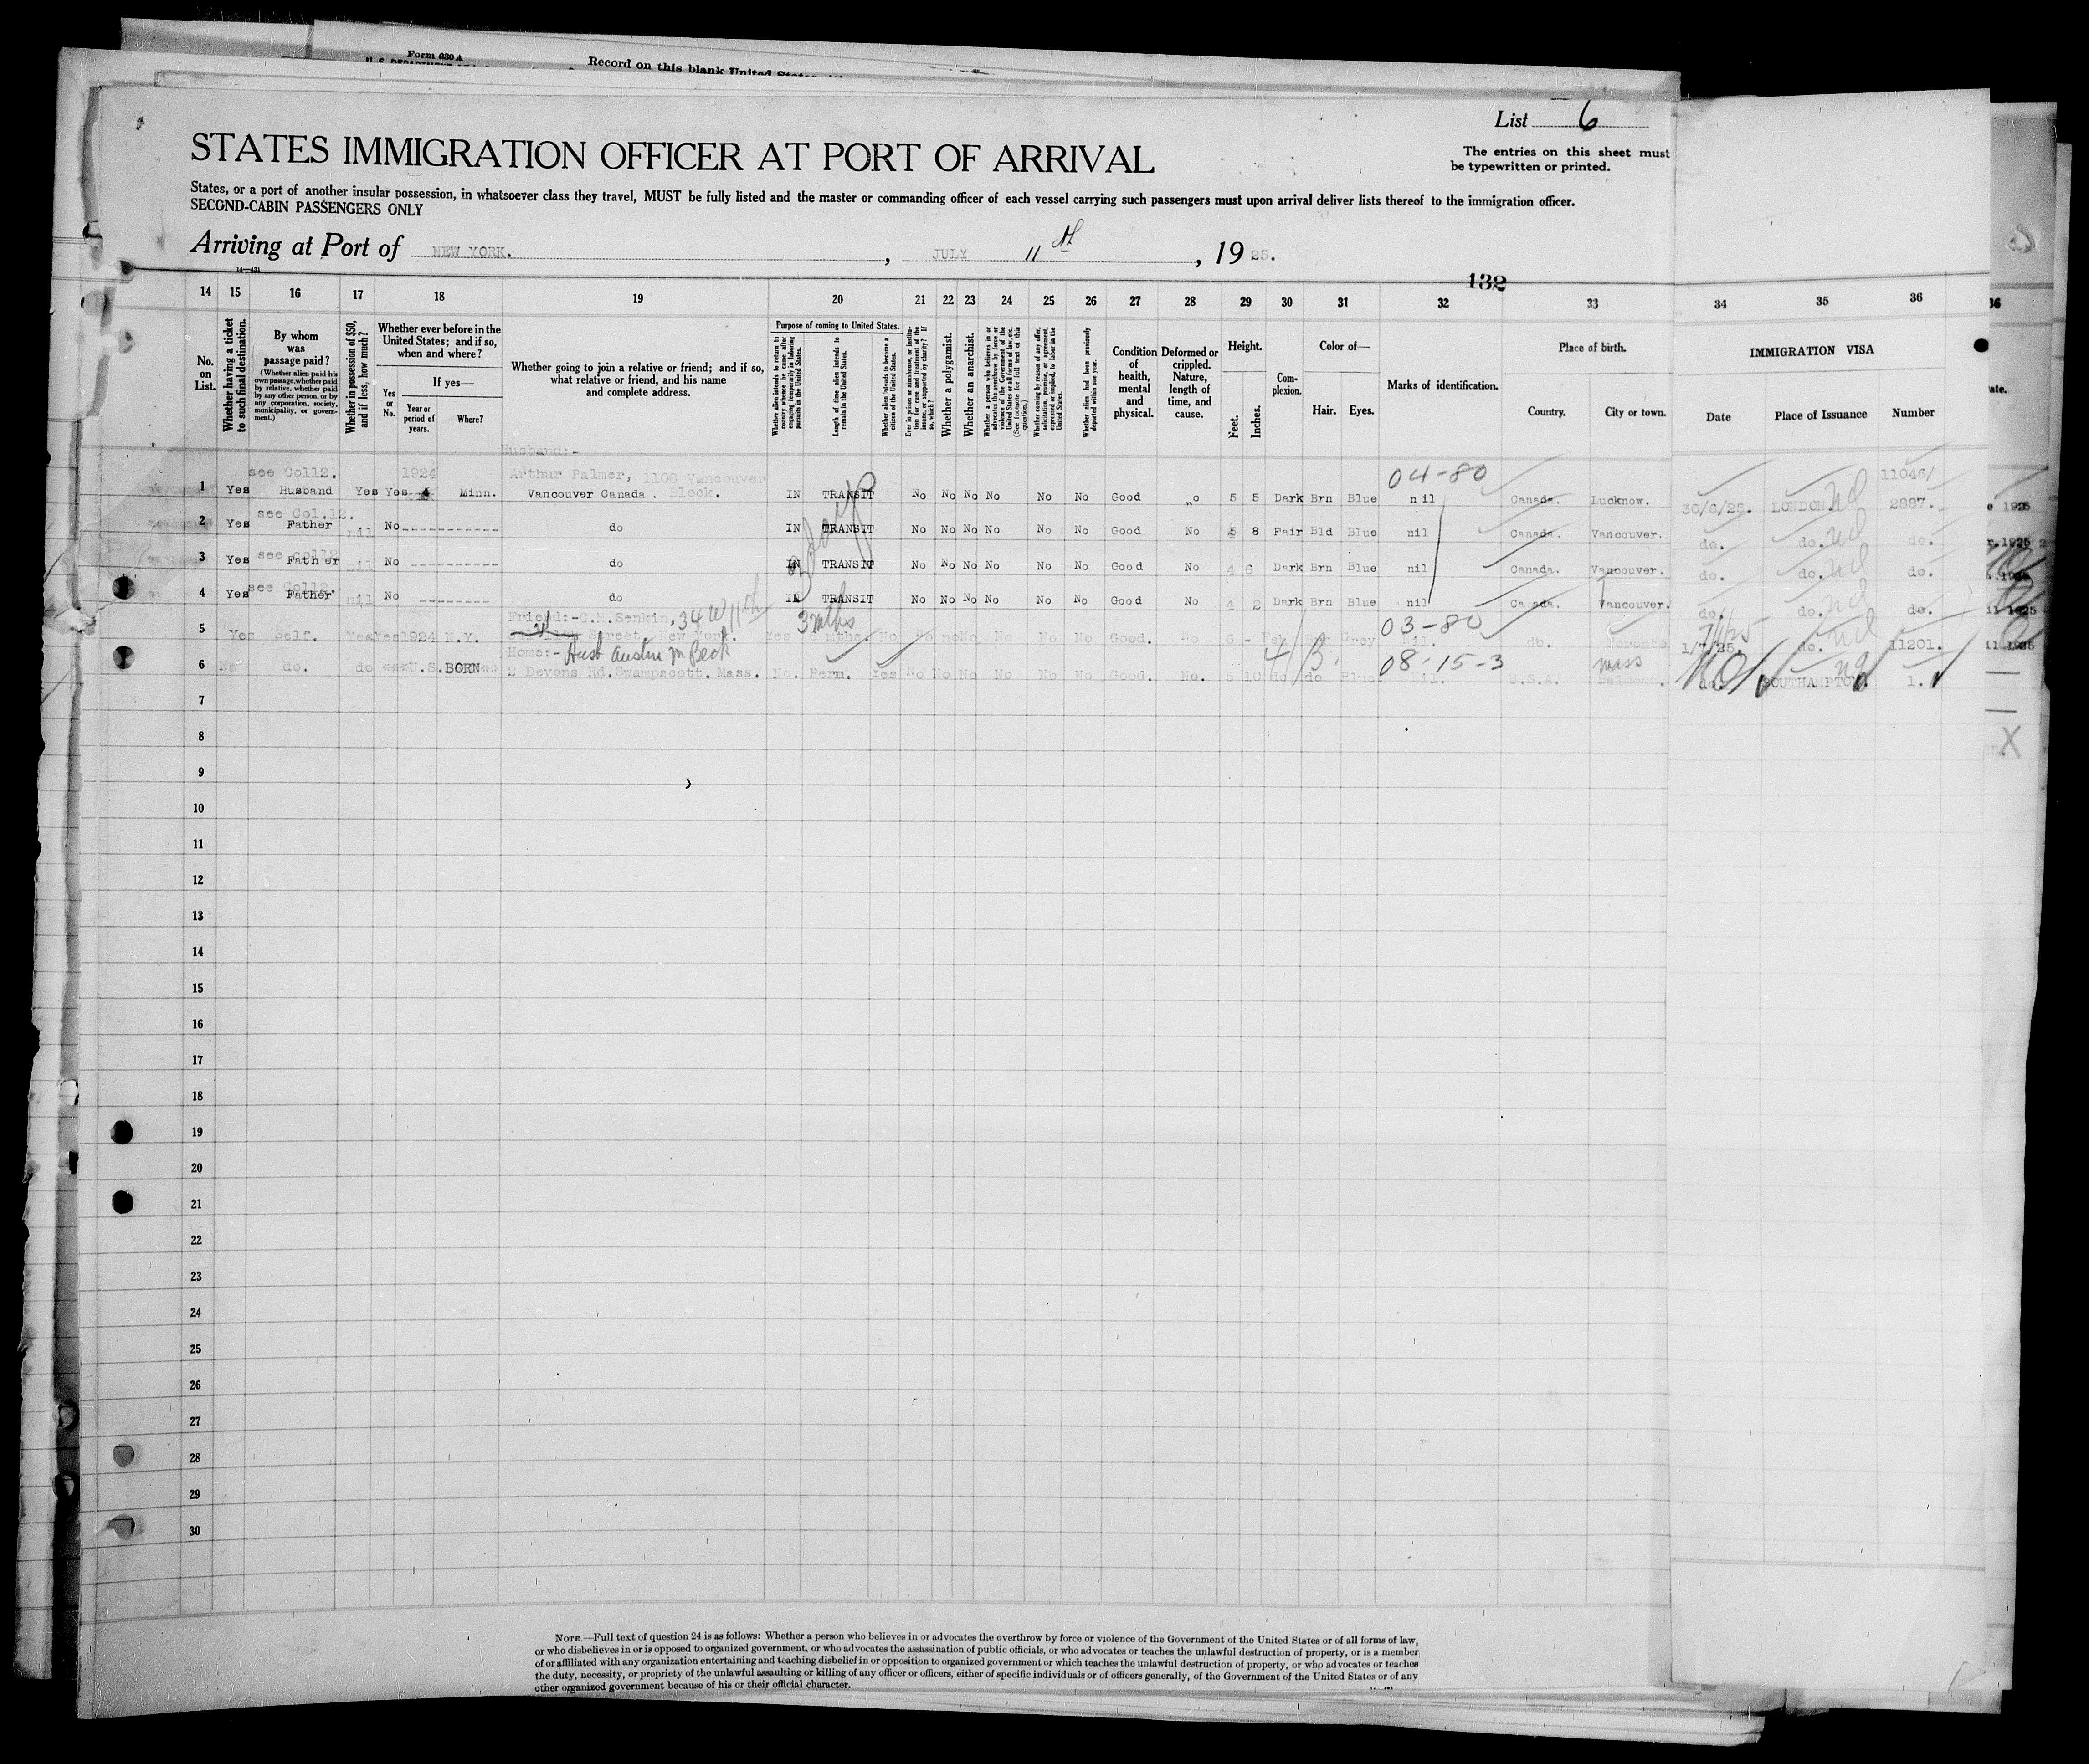 Form 630 A
Record on this blank United States
List 6
STATES IMMIGRATION OFFICER AT PORT OF ARRIVAL
The entries on this sheet must
be typewritten or printed.
States, or a port of another insular possession, in whatsoever class they travel, MUST be fully listed and the master or commanding officer of each vessel carrying such passengers must upon arrival deliver lists thereof to the immigration officer.
SECOND-CABIN PASSENGERS ONLY
Arriving at Port of NEW YORK. , JULY 11th , 1925.
14—431
132
14 15 16 17 18 19 20 21 22 23 24 25 26 27 28 29 30 31 32 33 34 35 36
No. on List.
Whether having a ticket to such final destination.
By whom was passage paid?
(Whether alien paid his own passage, whether paid by relative, whether paid by any other person, or by any corporation, society, municipality, or government.)
Whether in possession of $50, and if less, how much?
Whether ever before in the United States; and if so, when and where?
Yes or No.
If yes—
Year or period of years.
Where?
Whether going to join a relative or friend; and if so, what relative or friend, and his name and complete address.
Purpose of coming to United States.
Whether alien intends to return to country whence he came after engaging temporarily in laboring pursuits in the United States.
Length of time alien intends to remain in the United States.
Whether alien intends to become a citizen of the United States.
Ever in prison or almshouse, or institution for care and treatment of the insane, or supported by charity? If so, which?
Whether a polygamist.
Whether an anarchist.
Whether a person who believes in or advocates the overthrow by force or violence of the Government of the United States or all forms of law, etc. (See footnote for full text of this question.)
Whether coming by reason of any offer, solicitation, promise, or agreement, expressed or implied, to labor in the United States.
Whether alien had been previously deported within one year.
Condition of health, mental and physical.
Deformed or crippled. Nature, length of time, and cause.
Height.
Feet. Inches.
Complexion.
Color of—
Hair. Eyes.
Marks of identification.
Place of birth.
Country. City or town.
IMMIGRATION VISA
Date Place of Issuance Number
Husband:-
see Col12. 1924 Arthur Palmer, 1106 Vancouver 04-80 11046/
1 Yes Husband Yes Yes Minn. Vancouver Canada. Block. IN TRANSIT No No No No No No Good No 5 5 Dark Brn Blue nil Canada. Lucknow. 30/6/25. LONDON. 2887.
see Col.12.
2 Yes Father nil No do IN TRANSIT No No No No No No Good No 5 8 Fair Bld Blue nil Canada. Vancouver. do. do. do.
see Col12
3 Yes Father nil No do IN TRANSIT No No No No No No Good No 4 6 Dark Brn Blue nil Canada. Vancouver. do. do. do.
see Col12.
4 Yes Father nil No do IN TRANSIT No No No No No No Good No 4 2 Dark Brn Blue nil Canada. Vancouver. do. do. do.
Friend:-G.M. Senkin, 34 W 11th 3 mths 03-80
5 Yes Self. Yes Yes 1924 N.Y. Street, New York. Yes No No No No No No Good. No 6 - Grey Nil. do. Toronto 1/7/25. do. 11201.
Home:- Husb Austin M Beck 4 B. 08-15-3 mass
6 No do. do U.S.BORN 2 Devons Rd. Swampscott. Mass. No. Perm. Yes No No No No No No Good. No. 5 10 do do Blue. Nil. U.S.A. Belmont. do. SOUTHAMPTON 1.
7
8
9
10
11
12
13
14
15
16
17
18
19
20
21
22
23
24
25
26
27
28
29
30
NOTE.—Full text of question 24 is as follows: Whether a person who believes in or advocates the overthrow by force or violence of the Government of the United States or of all forms of law,
or who disbelieves in or is opposed to organized government, or who advocates the assassination of public officials, or who advocates or teaches the unlawful destruction of property, or is a member
of or affiliated with any organization entertaining and teaching disbelief in or opposition to organized government or which teaches the unlawful destruction of property, or who advocates or teaches
the duty, necessity, or propriety of the unlawful assaulting or killing of any officer or officers, either of specific individuals or of officers generally, of the Government of the United States or of any
other organized government because of his or their official character.